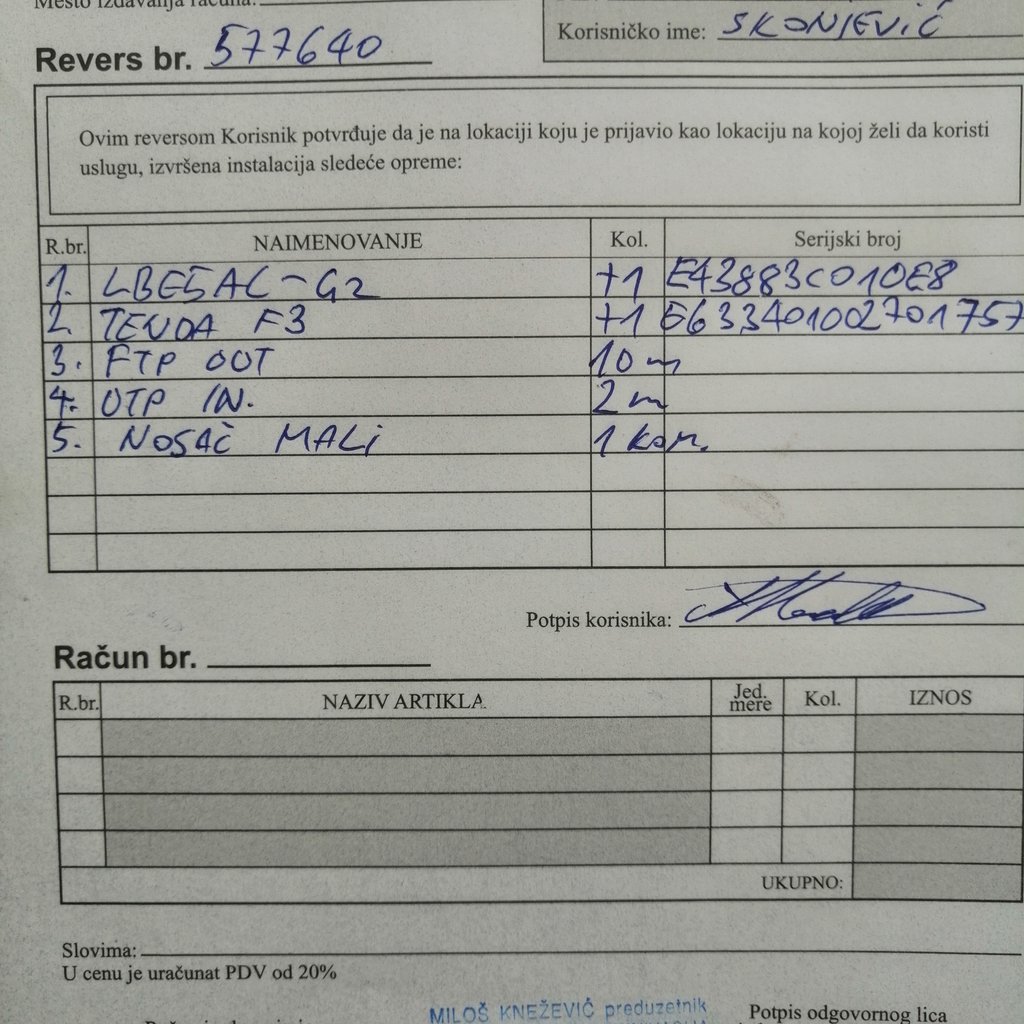 Mesto izdavanja računa:
Korisničko ime: SKONJEVIĆ
Revers br. 577640
Ovim reversom Korisnik potvrđuje da je na lokaciji koju je prijavio kao lokaciju na kojoj želi da koristi
uslugu, izvršena instalacija sledeće opreme:
R.br. NAIMENOVANJE Kol. Serijski broj
1. LBE5AC-G2 +1 E43883C010E8
2. TENDA F3 +1 E633401002701757
3. FTP OUT 10 m
4. UTP IN. 2 m
5. NOSAČ MALI 1 kom.
Potpis korisnika:
Račun br.
R.br. NAZIV ARTIKLA Jed. mere Kol. IZNOS
UKUPNO:
Slovima:
U cenu je uračunat PDV od 20%
MILOŠ KNEŽEVIĆ preduzetnik
Potpis odgovornog lica